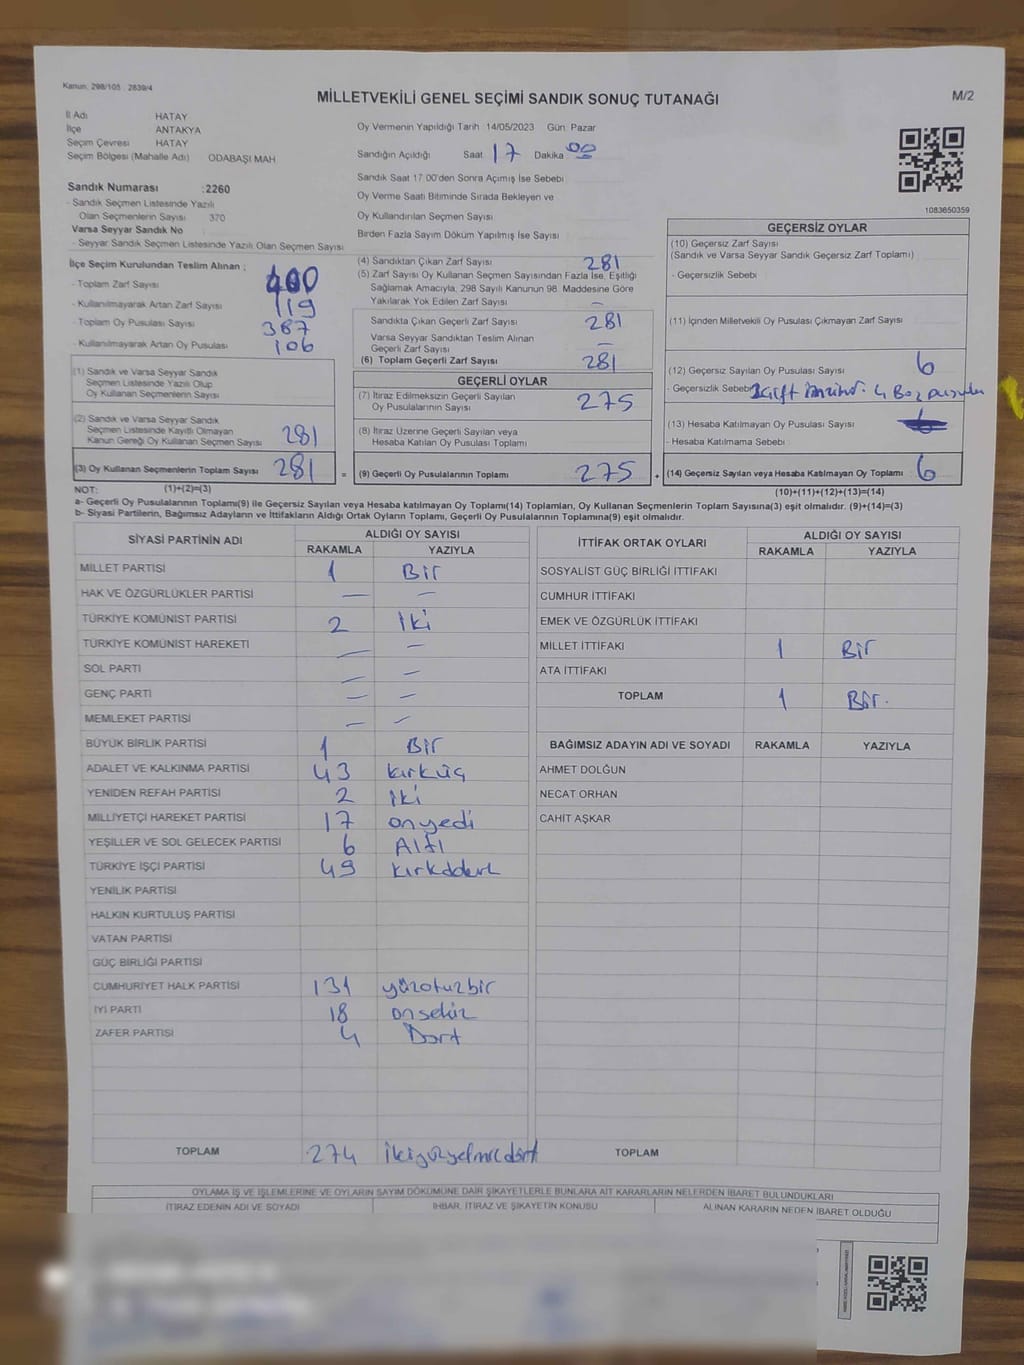 Kanun: 298/105 , 2839/4
MİLLETVEKİLİ GENEL SEÇİMİ SANDIK SONUÇ TUTANAĞI
M/2
İl Adı HATAY
İlçe ANTAKYA
Seçim Çevresi HATAY
Seçim Bölgesi (Mahalle Adı) ODABAŞI MAH
Oy Vermenin Yapıldığı Tarih 14/05/2023 Gün Pazar
Sandığın Açıldığı Saat 17 Dakika 00
Sandık Saat 17:00'den Sonra Açımış İse Sebebi
Oy Verme Saati Bitiminde Sırada Bekleyen ve
Oy Kullandırılan Seçmen Sayısı
Birden Fazla Sayım Döküm Yapılmış İse Sayısı
1083650359
Sandık Numarası :2260
- Sandık Seçmen Listesinde Yazılı
Olan Seçmenlerin Sayısı 370
Varsa Seyyar Sandık No
- Seyyar Sandık Seçmen Listesinde Yazılı Olan Seçmen Sayısı
İlçe Seçim Kurulundan Teslim Alınan ;
- Toplam Zarf Sayısı 400
- Kullanılmayarak Artan Zarf Sayısı 119
- Toplam Oy Pusulası Sayısı 387
- Kullanılmayarak Artan Oy Pusulası 106
(1) Sandık ve Varsa Seyyar Sandık
Seçmen Listesinde Yazılı Olup
Oy Kullanan Seçmenlerin Sayısı
(2) Sandık ve Varsa Seyyar Sandık
Seçmen Listesinde Kayıtlı Olmayan
Kanun Gereği Oy Kullanan Seçmen Sayısı 281
(3) Oy Kullanan Seçmenlerin Toplam Sayısı 281 =
(1)+(2)=(3)
(4) Sandıktan Çıkan Zarf Sayısı 281
(5) Zarf Sayısı Oy Kullanan Seçmen Sayısından Fazla İse, Eşitliği
Sağlamak Amacıyla, 298 Sayılı Kanunun 98. Maddesine Göre
Yakılarak Yok Edilen Zarf Sayısı –
Sandıkta Çıkan Geçerli Zarf Sayısı 281
Varsa Seyyar Sandıktan Teslim Alınan
Geçerli Zarf Sayısı –
(6) Toplam Geçerli Zarf Sayısı 281
GEÇERLİ OYLAR
(7) İtiraz Edilmeksizin Geçerli Sayılan
Oy Pusulalarının Sayısı 275
(8) İtiraz Üzerine Geçerli Sayılan veya
Hesaba Katılan Oy Pusulası Toplamı
(9) Geçerli Oy Pusulalarının Toplamı 275 +
GEÇERSİZ OYLAR
(10) Geçersiz Zarf Sayısı
(Sandık ve Varsa Seyyar Sandık Geçersiz Zarf Toplamı)
- Geçersizlik Sebebi
(11) İçinden Milletvekili Oy Pusulası Çıkmayan Zarf Sayısı
(12) Geçersiz Sayılan Oy Pusulası Sayısı 6
- Geçersizlik Sebebi
(13) Hesaba Katılmayan Oy Pusulası Sayısı
- Hesaba Katılmama Sebebi
(14) Geçersiz Sayılan veya Hesaba Katılmayan Oy Toplamı 6
(10)+(11)+(12)+(13)=(14)
NOT:
a- Geçerli Oy Pusulalarının Toplamı(9) ile Geçersiz Sayılan veya Hesaba katılmayan Oy Toplamı(14) Toplamları, Oy Kullanan Seçmenlerin Toplam Sayısına(3) eşit olmalıdır. (9)+(14)=(3)
b- Siyasi Partilerin, Bağımsız Adayların ve İttifakların Aldığı Ortak Oyların Toplamı, Geçerli Oy Pusulalarının Toplamına(9) eşit olmalıdır.
SİYASİ PARTİNİN ADI ALDIĞI OY SAYISI
RAKAMLA YAZIYLA
MİLLET PARTİSİ 1 Bir
HAK VE ÖZGÜRLÜKLER PARTİSİ — —
TÜRKİYE KOMÜNİST PARTİSİ 2 İki
TÜRKİYE KOMÜNİST HAREKETİ — —
SOL PARTİ — —
GENÇ PARTİ — —
MEMLEKET PARTİSİ — —
BÜYÜK BİRLİK PARTİSİ 1 Bir
ADALET VE KALKINMA PARTİSİ 43 kırküç
YENİDEN REFAH PARTİSİ 2 iki
MİLLİYETÇİ HAREKET PARTİSİ 17 onyedi
YEŞİLLER VE SOL GELECEK PARTİSİ 6 Altı
TÜRKİYE İŞÇİ PARTİSİ 49
YENİLİK PARTİSİ
HALKIN KURTULUŞ PARTİSİ
VATAN PARTİSİ
GÜÇ BİRLİĞİ PARTİSİ
CUMHURİYET HALK PARTİSİ 131 yüzotuzbir
İYİ PARTİ 18 onsekiz
ZAFER PARTİSİ 4 Dört
TOPLAM 274 ikiyüzyetmişdört
İTTİFAK ORTAK OYLARI ALDIĞI OY SAYISI
RAKAMLA YAZIYLA
SOSYALİST GÜÇ BİRLİĞİ İTTİFAKI
CUMHUR İTTİFAKI
EMEK VE ÖZGÜRLÜK İTTİFAKI
MİLLET İTTİFAKI 1 Bir
ATA İTTİFAKI
TOPLAM 1 Bir.
BAĞIMSIZ ADAYIN ADI VE SOYADI RAKAMLA YAZIYLA
AHMET DOLĞUN
NECAT ORHAN
CAHİT AŞKAR
TOPLAM
OYLAMA İŞ VE İŞLEMLERİNE VE OYLARIN SAYIM DÖKÜMÜNE DAİR ŞİKAYETLERLE BUNLARA AİT KARARLARIN NELERDEN İBARET BULUNDUKLARI
İTİRAZ EDENİN ADI VE SOYADI İHBAR, İTİRAZ VE ŞİKAYETİN KONUSU ALINAN KARARIN NEDEN İBARET OLDUĞU